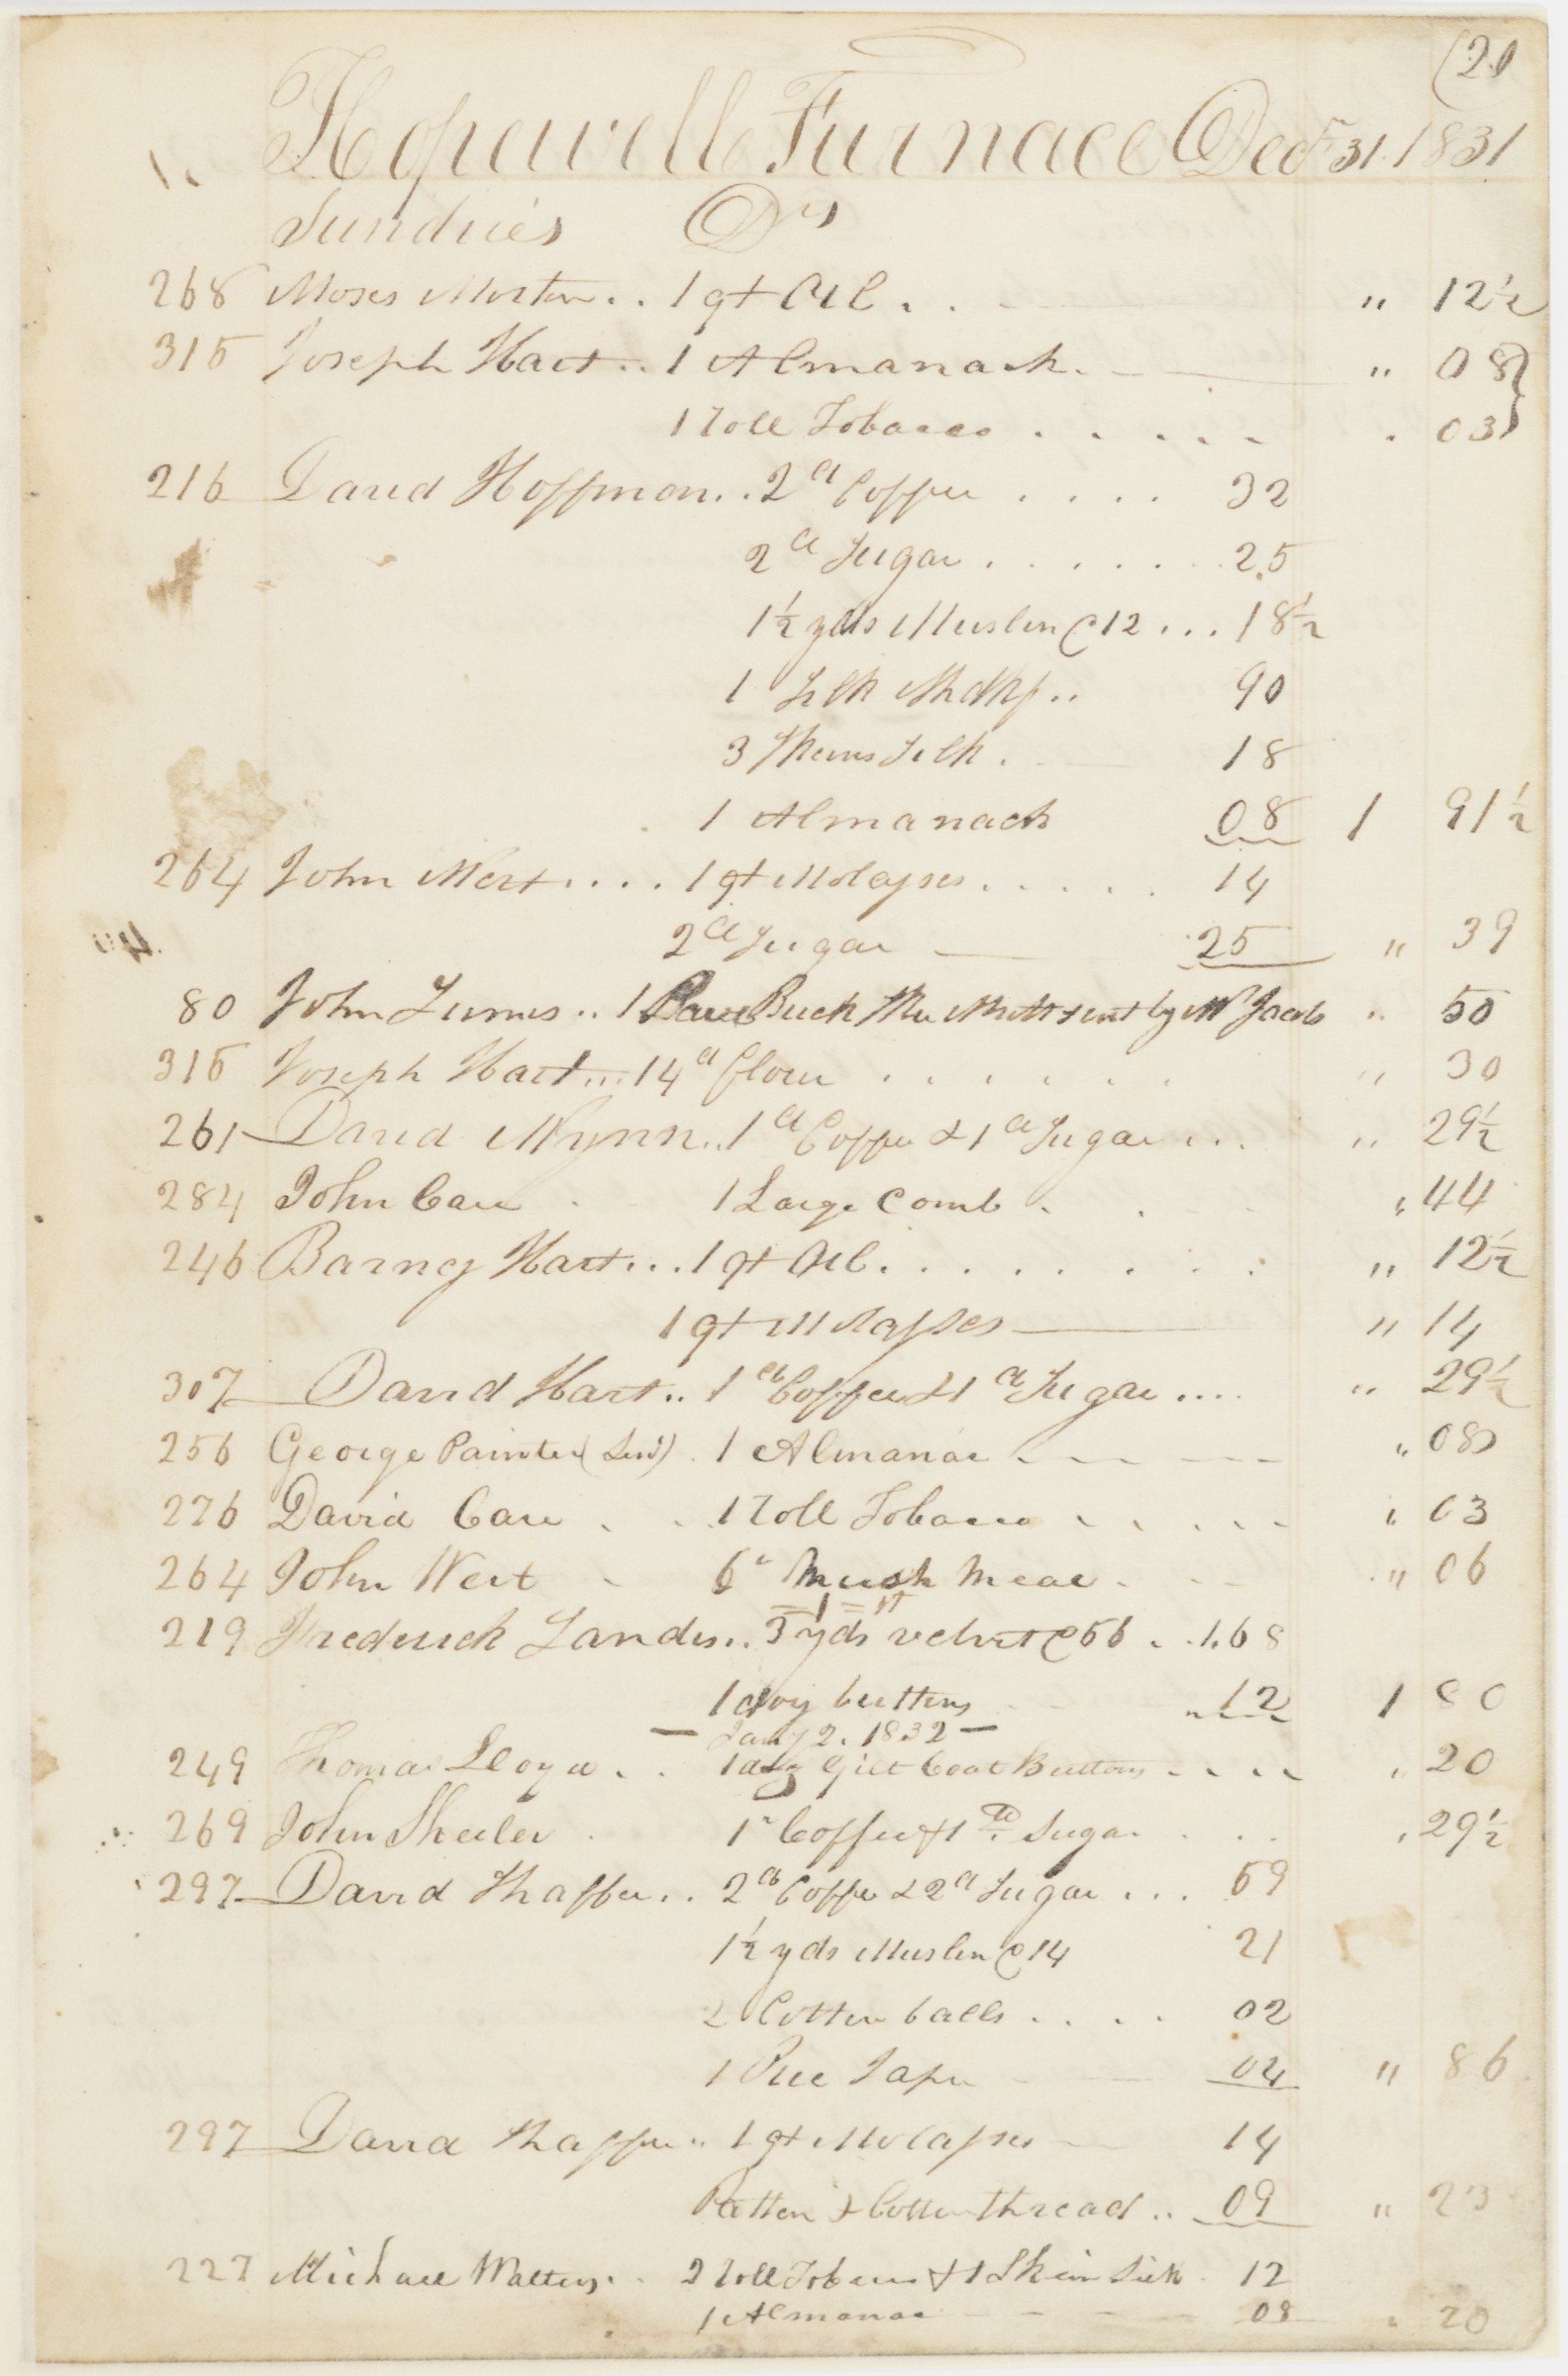 (20
Hopewell Furnace Decr 31. 1831
Sundries Drs
268 Moses Morton .. 1 qt Oil . . " 12½
315 Joseph Hart .. 1 Almanack. " 08
1 roll Tobacco . . . . . . 03
216 David Hoffman .. 2 lb Coffee . . . . 32
2 lb Sugar . . . . . . . 25
1½ yds Muslin @ 12 ... 18½
1 Silk Hdkf .. 90
3 Skeins Silk . 18
1 Almanack 08 1 91½
264 John Wert .... 1 qt Molasses . . . . . 14
2 lb Sugar 25 " 39
80 John .. 1 Pair Buck by Mr Jacobs " 50
315 Joseph Hart ... 14 lb flour . . . . . . " 30
261 David Wynn .. 1 lb Coffee & 1 lb Sugar ... " 29½
284 John Care 1 Large Comb . . " 44
246 Barney Hart ... 1 qt Oil . . . . . . . . " 12½
1 qt Molasses " 14
307 David Hart .. 1 lb Coffee & 1 lb Sugar .... " 29½
256 George Painter (Senr) . 1 Almanac " 08
276 David Care . . 1 roll Tobacco . . . . . " 03
264 John Wert - 6 lb Mush Meal - - - " 06
219 Frederick Landis .. 3 yds velvet @ 56 . . 1.68
1 doz buttons " 12 1 80
— Jany 2. 1832 —
249 Thomas Lloyd . . 1 doz Gilt Coat Buttons - . . . " 20
269 John Sheeler . 1 lb Coffee & 1 lb Sugar . . . " 29½
297 David Shaffer .. 2 lb Coffee & 2 lb Sugar ... 59
1½ yds Muslin @ 14 21
2 Cotton balls . . . . 02
1 Pce Tape - 04 " 86
297 David Shaffer .. 1 qt Molasses 14
Patten & Cotton thread .. 09 " 23
227 Michael Walters . . 2 roll Tobacco & 1 Skein Silk . 12
1 Almanac 08 " 20